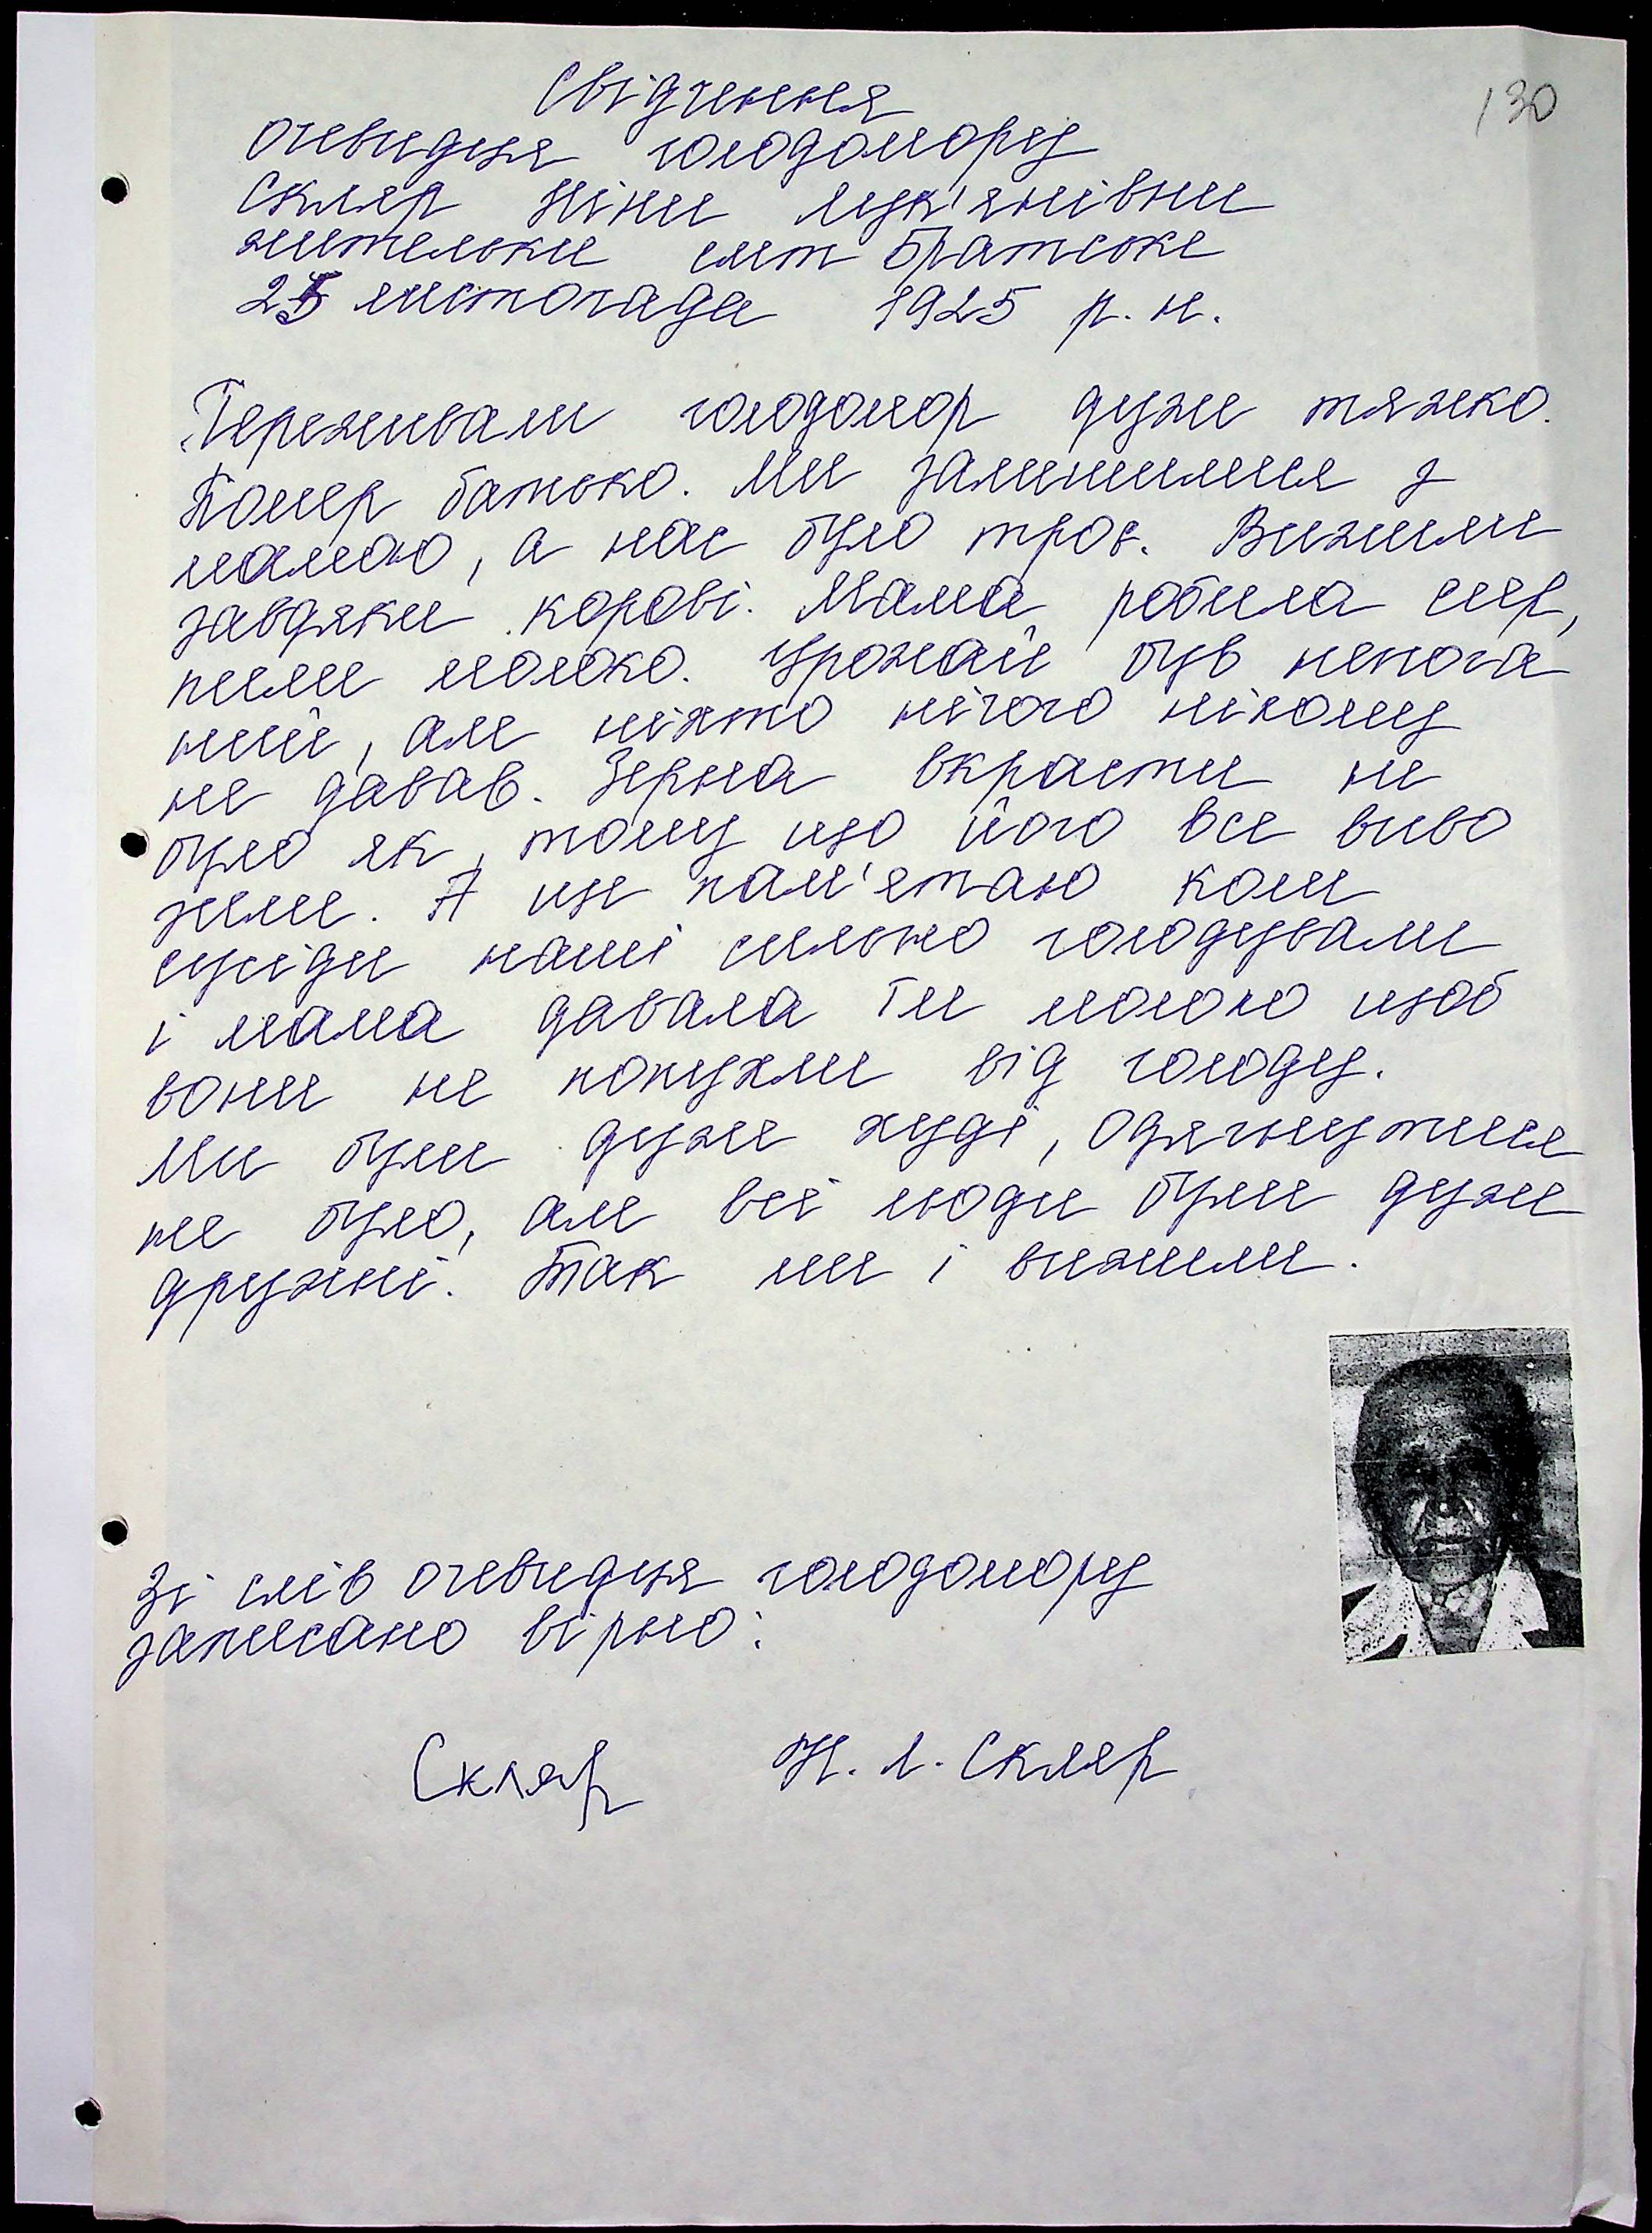 130
Свідчення
очевидця голодомору
Скляр Ніни Лук'янівни
жительки смт Братське
25 листопада 1925 р. н.
Переживали голодомор дуже тяжко.
Помер батько. Ми залишилися з
мамою, а нас було троє. Вижили
завдяки корові. Мама робила сир,
пили молоко. Урожай був непога
ний, але ніхто нічого нікому
не давав. Зерна вкрасти не
було як, тому що його все виво
зили. А ще пам'ятаю коли
сусіди наші сильно голодували
і мама давала їм молоко щоб
вони не попухли від голоду.
Ми були дуже худі, одягнутися
не було, але всі люди були дуже
дружні. Так ми і вижили.
Зі слів очевидця голодомору
записано вірно:
Скляр Н. Л. Скляр